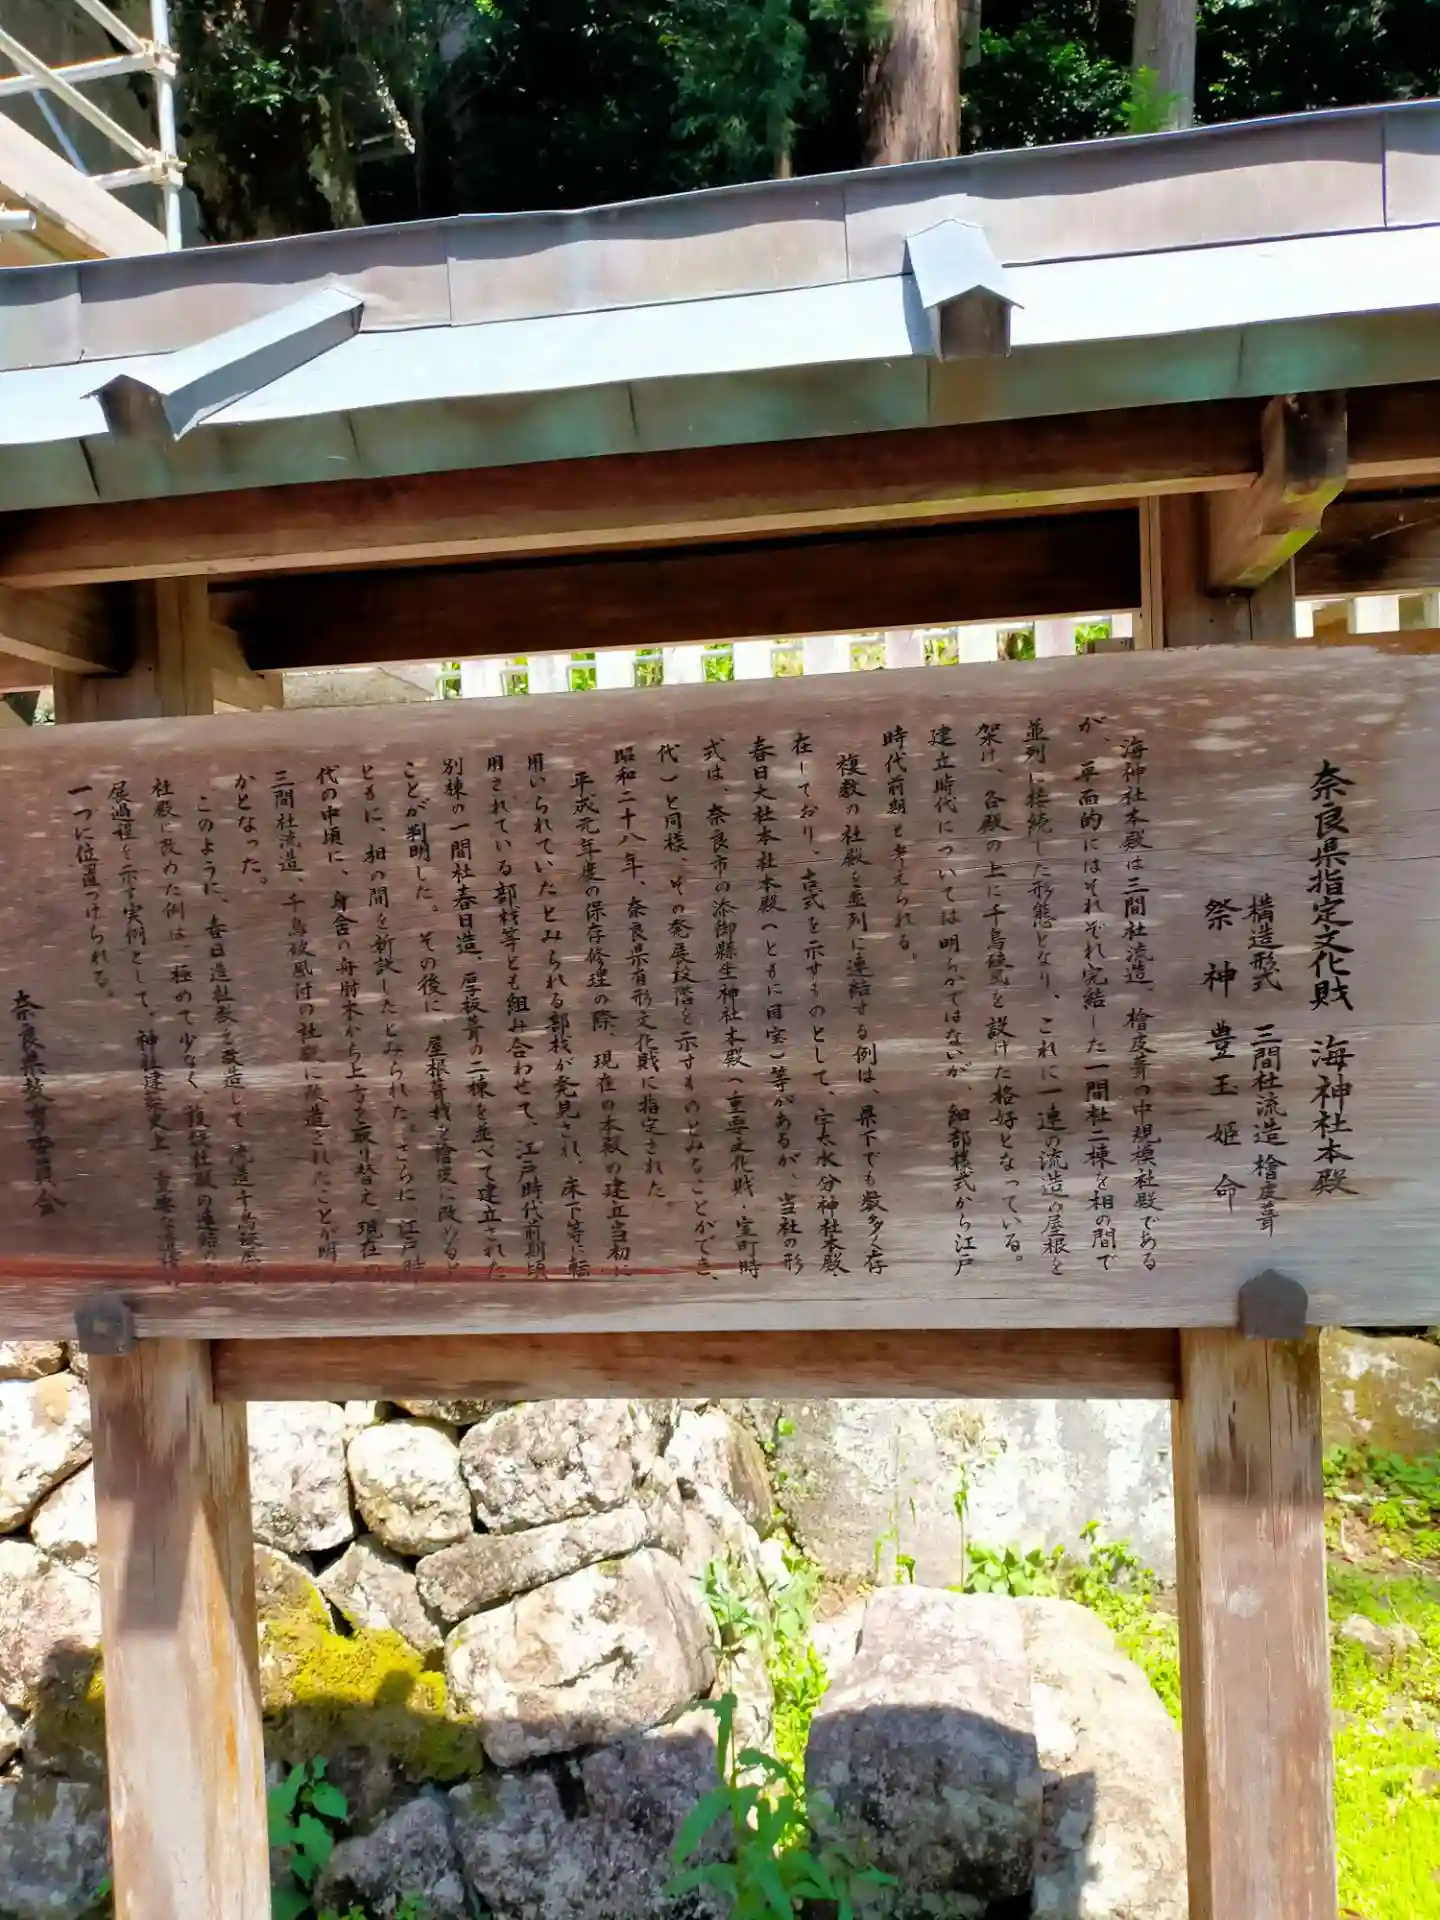 奈良県指定文化財 海神社本殿
構造形式 三間社流造 檜皮葺
祭神 豊玉姫命
海神社本殿は三間社流造、檜皮葺の中規模社殿である
が、平面的にはそれぞれ完結した一間社二棟を相の間で
並列に接続した形態となり、これに一連の流造の屋根を
架け、各殿の上に千鳥破風を設けた格好となっている。
建立時代については明らかではないが、細部様式から江戸
時代前期と考えられる。
複数の社殿を並列に連結する例は、県下でも数多く存
在しており、古式を示すものとして、宇太水分神社本殿、
春日大社本社本殿(ともに国宝)等があるが、当社の形
式は、奈良市の添御縣坐神社本殿(重要文化財・室町時
代)と同様、その発展段階を示すものとみなことができ、
昭和二十八年、奈良県有形文化財に指定された。
平成元年度の保存修理の際、現在の本殿の建立当初に
用いられていたとみられる部材が発見され、床下等に転
用されている部材等とも組み合わせて、江戸時代前期頃
別棟の一間社春日造、厚板葺の二棟を並べて建立された
ことが判明した。その後に、屋根葺材を檜皮に改めると
ともに、相の間を新設したとみられた。さらに、江戸時
代の中頃に、身舎の舟肘木から上方を取り替え、現在の
三間社流造、千鳥破風付の社殿に改造されたことが明
かとなった。
このように、春日造社殿を改造して、流造千鳥破風
社殿に改めた例は、極めて少なく、複数社殿の連結の発
展過程を示す実例として、神社建築史上、重要な遺構の
一つに位置づけられる。
奈良県教育委員会